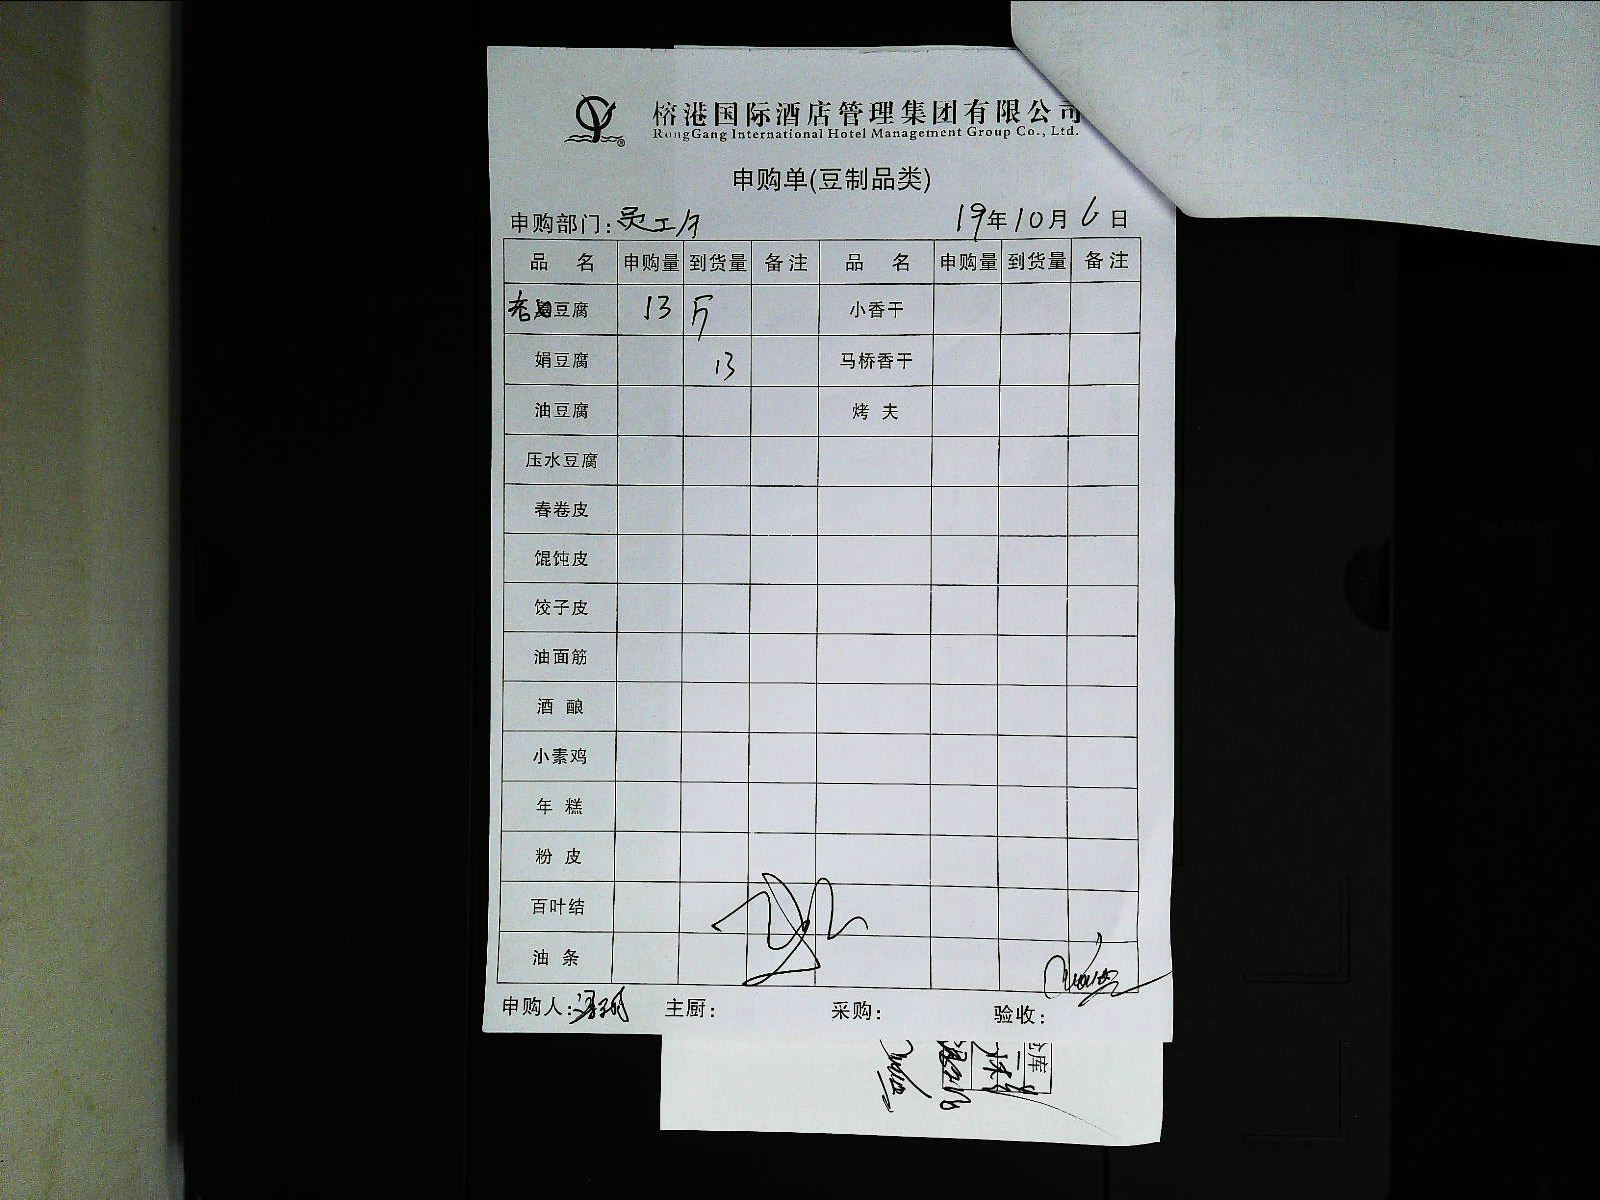 榕港国际酒店管理集团有限公司
RongGang International Hotel Management Group Co., Ltd.
申购单(豆制品类)
申购部门: 19年10月6日
品 名 申购量 到货量 备注 品 名 申购量 到货量 备注
老豆腐 13 斤 小香干
娟豆腐 13 马桥香干
油豆腐 烤 夫
压水豆腐
春卷皮
馄饨皮
饺子皮
油面筋
酒 酿
小素鸡
年 糕
粉 皮
百叶结
油 条
申购人: 主厨: 采购: 验收: